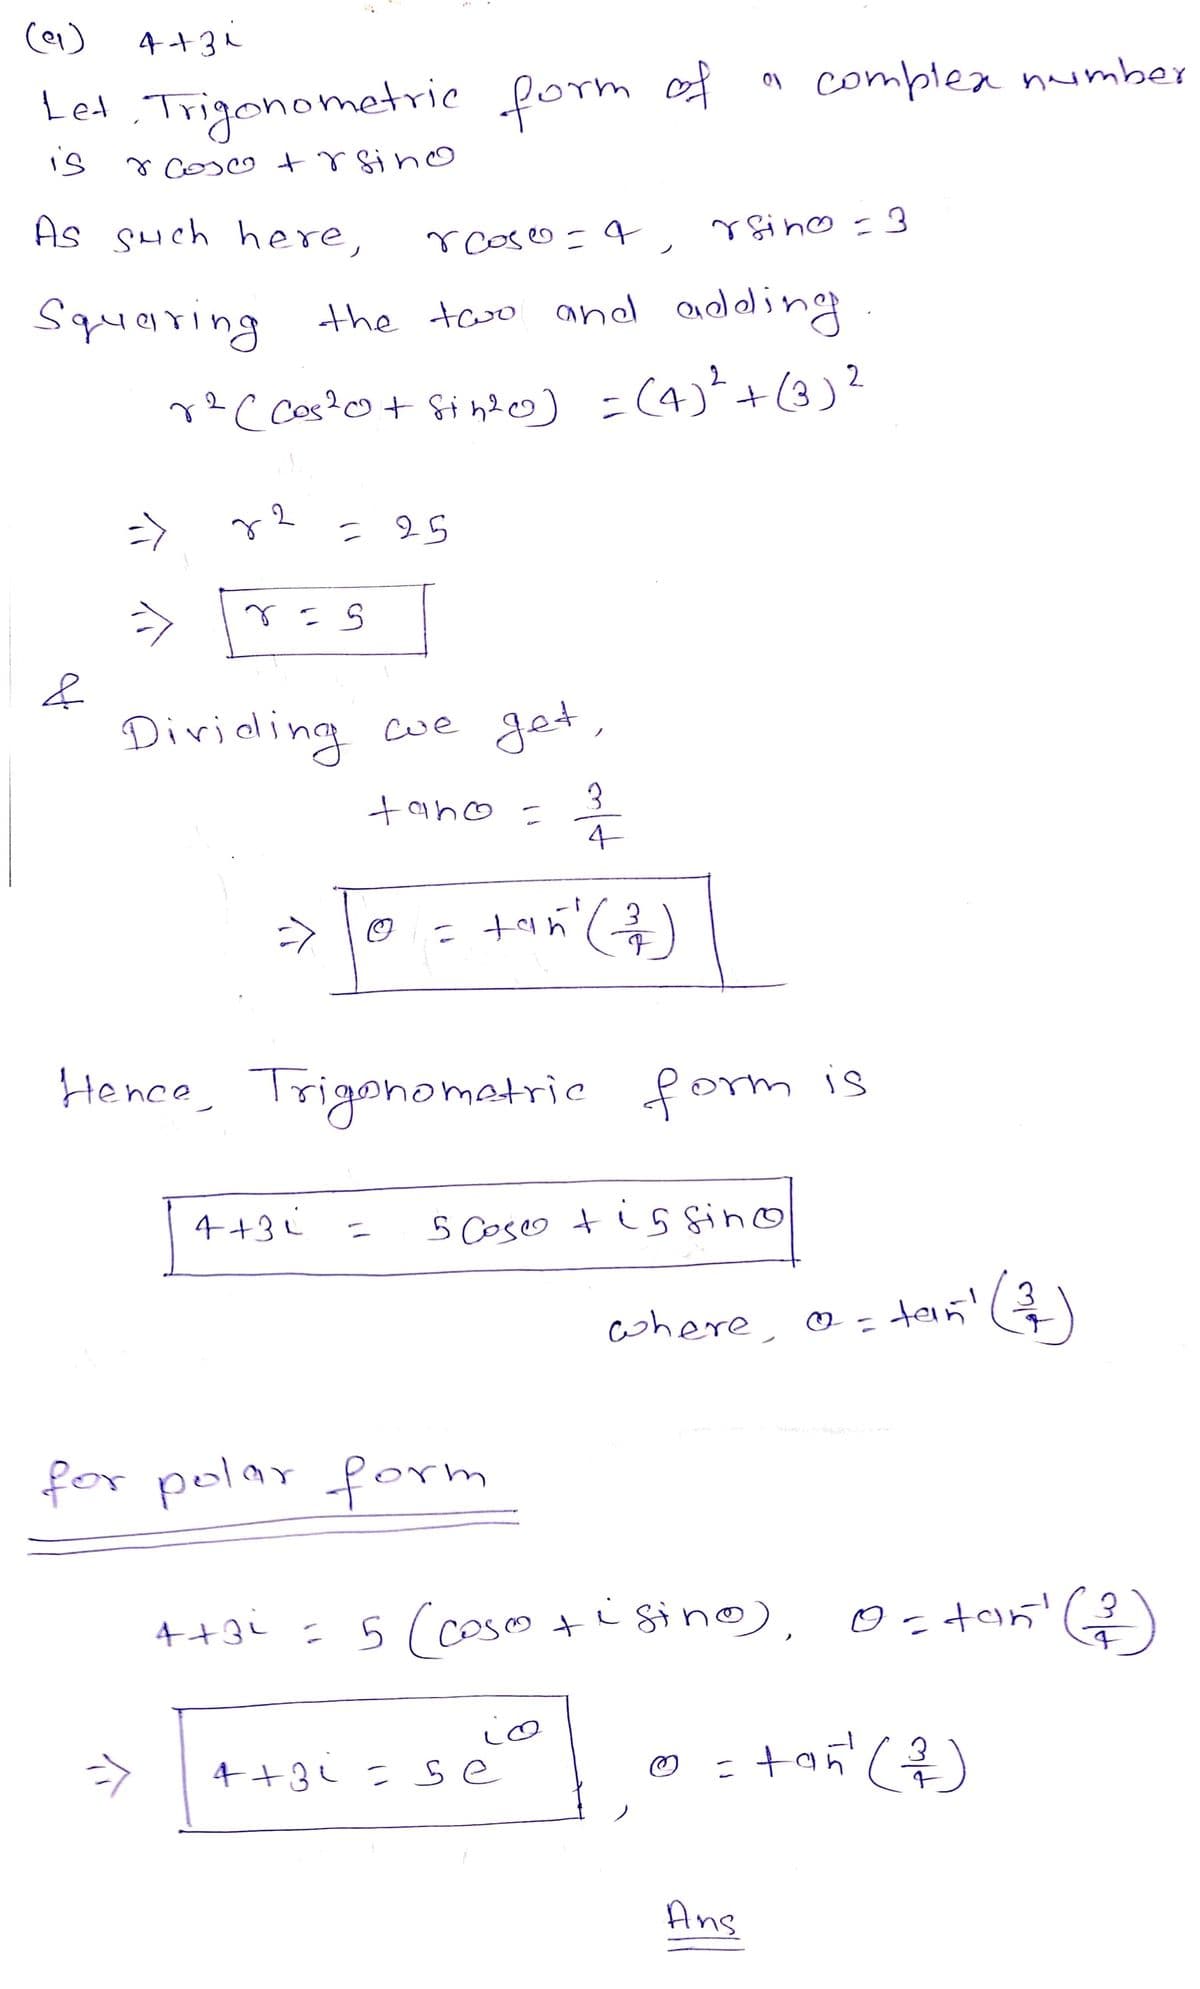 (a) 4+3i
Let, Trigonometric form of a complex number
is r cosθ + r sinθ
As such here, r cosθ = 4, r sinθ = 3
Squaring the two and adding.
r²(cos²θ + sin²θ) = (4)² + (3)²
⇒ r² = 25
⇒ r = 5
&
Dividing we get,
tanθ = 3/4
⇒ θ = tan⁻¹(3/4)
Hence, Trigonometric form is
4+3i = 5 cosθ + i 5 sinθ
where, θ = tan⁻¹(3/4)
for polar form
4+3i = 5 (cosθ + i sinθ), θ = tan⁻¹(3/4)
⇒ 4+3i = 5e^{iθ}, θ = tan⁻¹(3/4)
Ans